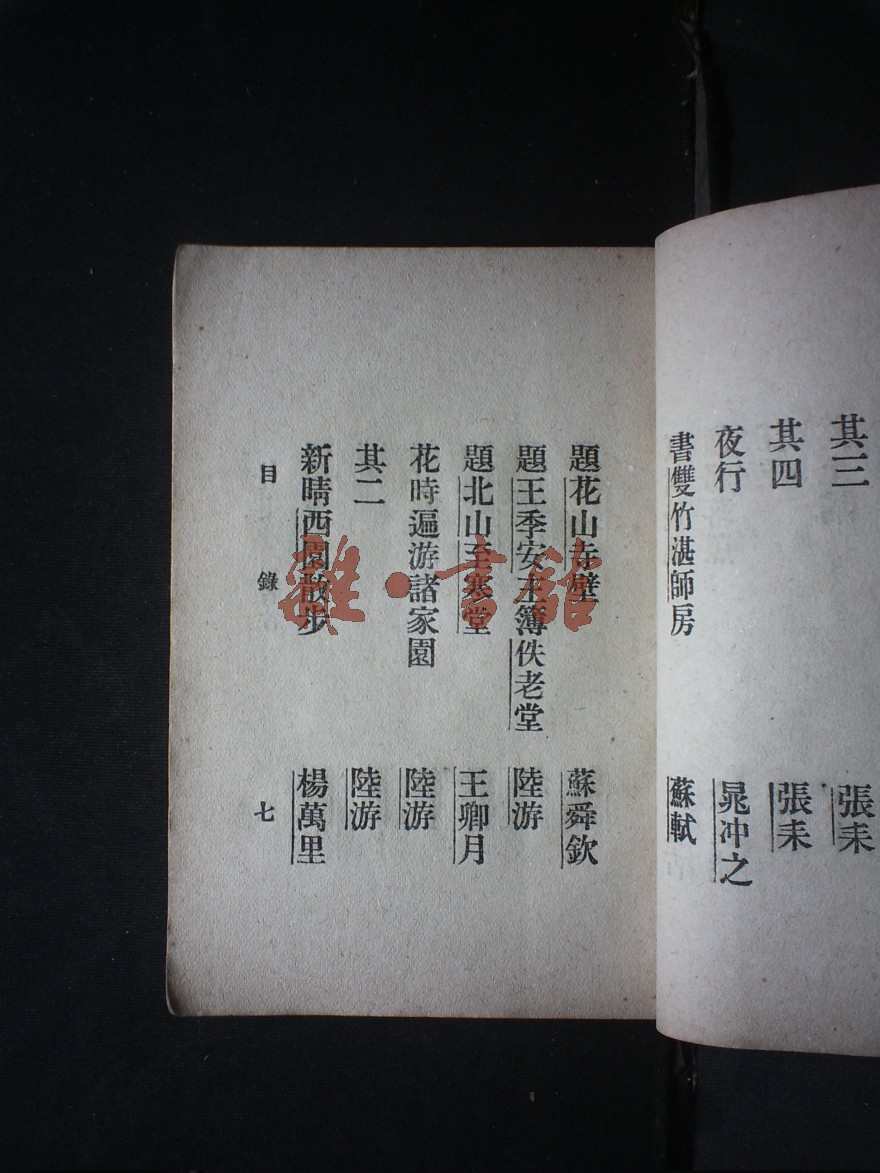 其三 張耒
其四 張耒
夜行 晁冲之
書雙竹湛師房 蘇軾
題花山寺壁 蘇舜欽
題王季安主簿佚老堂 陸游
題北山至寒堂 王卿月
花時遍游諸家園 陸游
其二 陸游
新晴西園散步 楊萬里
目錄 七
雜·書館